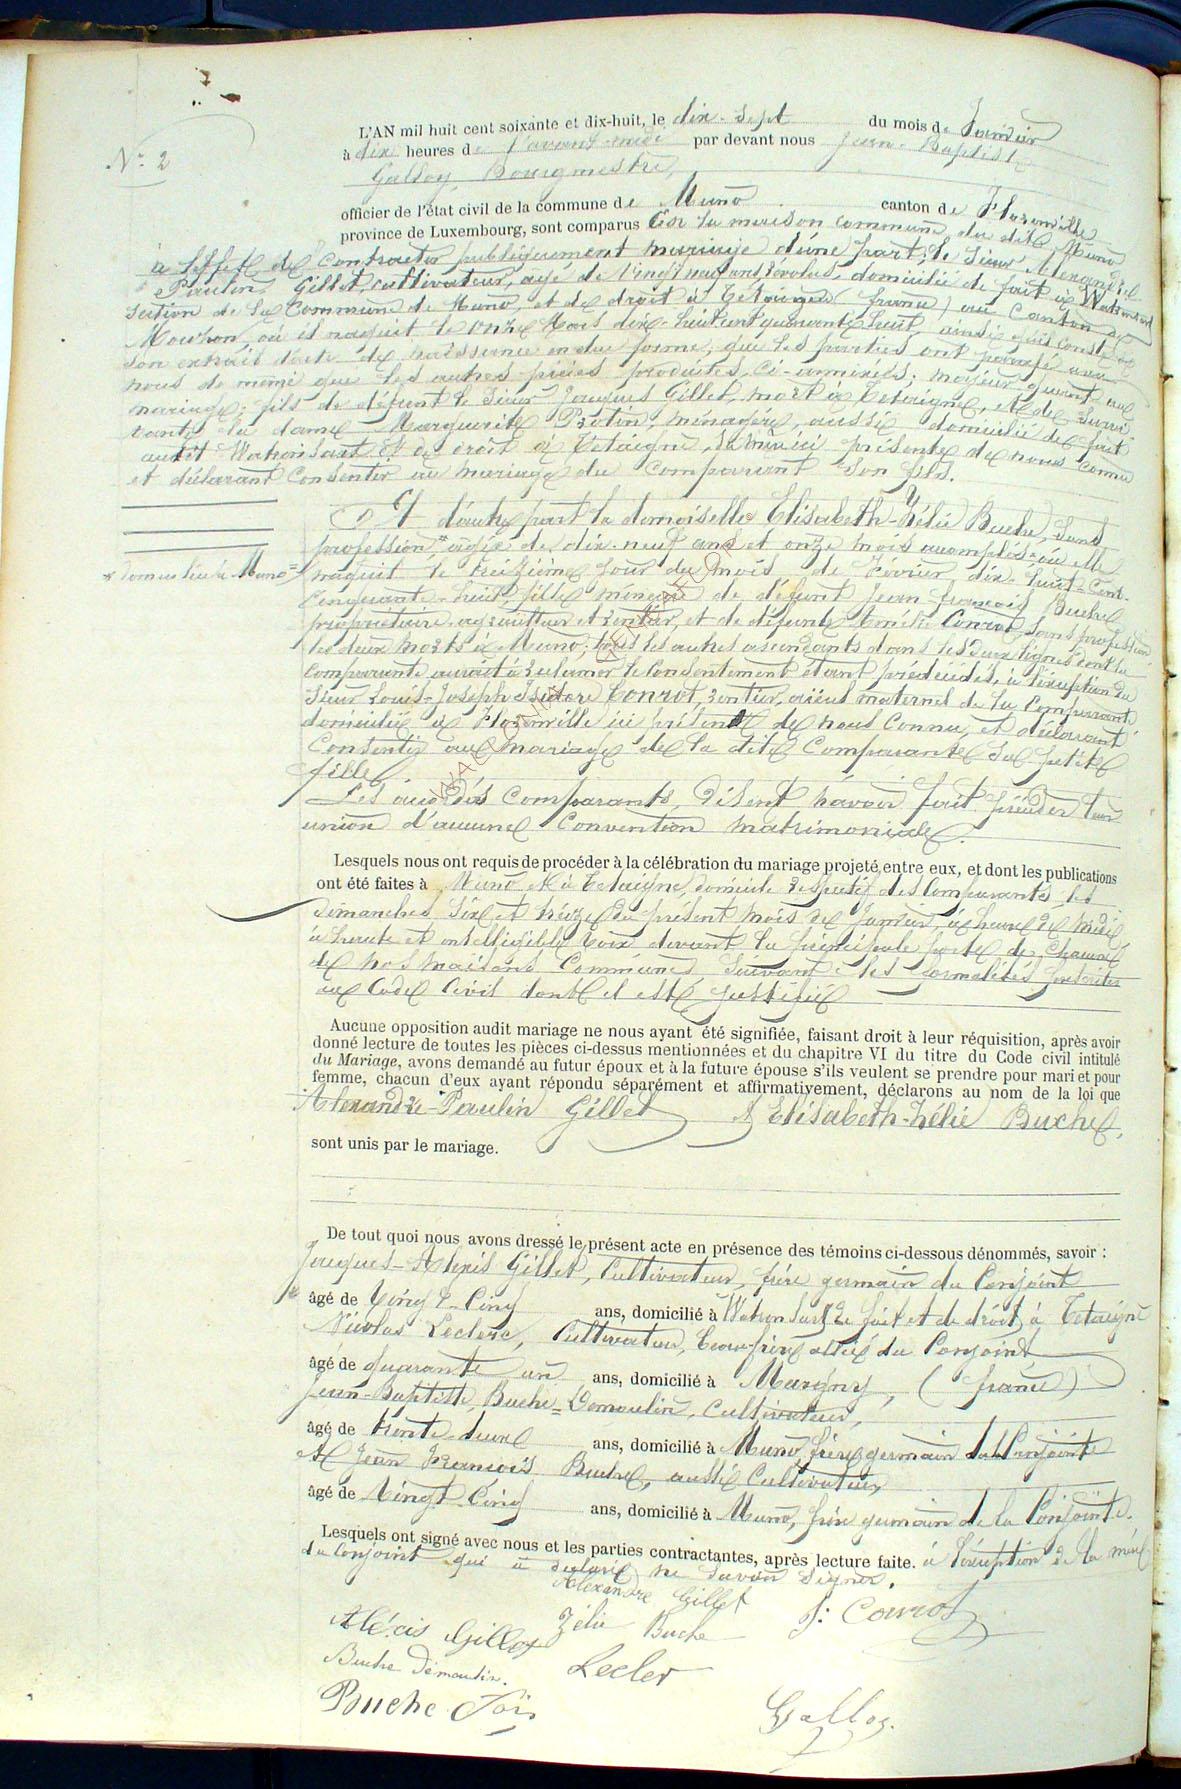 N° 2
L'AN mil huit cent soixante et dix-huit, le dix-sept du mois de Janvier
à dix heures de l'avant-midi par devant nous Jean-Baptiste
Galloy, Bourgmestre,
officier de l'état civil de la commune de Muno canton de Florenville
province de Luxembourg, sont comparus En la maison commune du dit Muno
à l'effet de contracter publiquement mariage d'une part, le Sieur Alexandre
Paulin Gillet, cultivateur, agé de vingt neuf ans révolus, domicilié de fait à Watrinsart
section de la Commune de Muno, et de droit à Tétaigne (france) au Canton de
Mouzon, où il naquit le onze Mars dix-huit cent quarante huit, ainsi qu'il conste de
son extrait d'acte de naissance en due forme, que les parties ont parafé avec
nous de même que les autres pièces produites, ci-annexées; majeur quant au
mariage; fils de défunt le Sieur Jacques Gillet, mort à Tétaigne, et de survi
vante la dame Marguerite Protin, ménagère, aussi domiciliée de fait
audit Watrinsart et de droit à Tétaigne, la même ici présente de nous connue
et déclarant consentir au mariage du comparant son fils.
Et d'autre part la demoiselle Elisabeth-Zélie Buche, sans
profession, * agée de dix-neuf ans et onze mois accomplis où elle
* domiciliée à Muno =
naquit le treizième jour du mois de Février dix-huit-cent-
cinquante-huit, fille mineure de défunt Jean françois Buche
propriétaire agriculteur et rentier, et de défunte Conrot, sans profession
les deux morts à Muno; tous les autres ascendants dans les deux lignes dont la
comparante aurait à réclamer le consentement étant prédécédés, à l'exception du
Sieur Louis-Joseph-Isidore Conrot, rentier, aïeul maternel de la Comparante
domicilié à Florenville ici présent de nous connu, et déclarant
Consentir au mariage de la dite Comparante sa petite
fille.
Les susdits Comparants, disent n'avoir fait précéder leur
union d'aucune Convention matrimoniale.
Lesquels nous ont requis de procéder à la célébration du mariage projeté entre eux, et dont les publications
ont été faites à Muno et à Tétaigne, domicile respectif des Comparants, les
dimanches six et treize du présent mois de Janvier, à heure de midi
à haute et intelligible voix devant la principale porte de chacune
de nos maisons Communes, suivant les formalités prescrites
au Code Civil dont il est justifié
Aucune opposition audit mariage ne nous ayant été signifiée, faisant droit à leur réquisition, après avoir
donné lecture de toutes les pièces ci-dessus mentionnées et du chapitre VI du titre du Code civil intitulé
du Mariage, avons demandé au futur époux et à la future épouse s'ils veulent se prendre pour mari et pour
femme, chacun d'eux ayant répondu séparément et affirmativement, déclarons au nom de la loi que
Alexandre-Paulin Gillet et Elisabeth-Zélie Buche,
sont unis par le mariage.
De tout quoi nous avons dressé le présent acte en présence des témoins ci-dessous dénommés, savoir :
Jacques-Alexis Gillet, Cultivateur, frère germain du Conjoint
âgé de Vingt-Cinq ans, domicilié à Watrinsart de fait et de droit à Tétaigne
Nicolas Leclerc, Cultivateur, beau-frère allié du Conjoint
âgé de quarante un ans, domicilié à Marigny, (france)
Jean-Baptiste Buche-Demoulin, cultivateur,
âgé de trente-deux ans, domicilié à Muno, frère germain de la Conjointe
Et Jean François Buche, aussi Cultivateur
âgé de Vingt-Cinq ans, domicilié à Muno, frère germain de la Conjointe.
Lesquels ont signé avec nous et les parties contractantes, après lecture faite. à l'exception de la mère
du conjoint qui a déclaré ne savoir signer.
Alexandre Gillet
Alécis Gillet Zélie Buche J: Conrot
Buche Demoulin. Lecler
Buche Fois
Galloy.